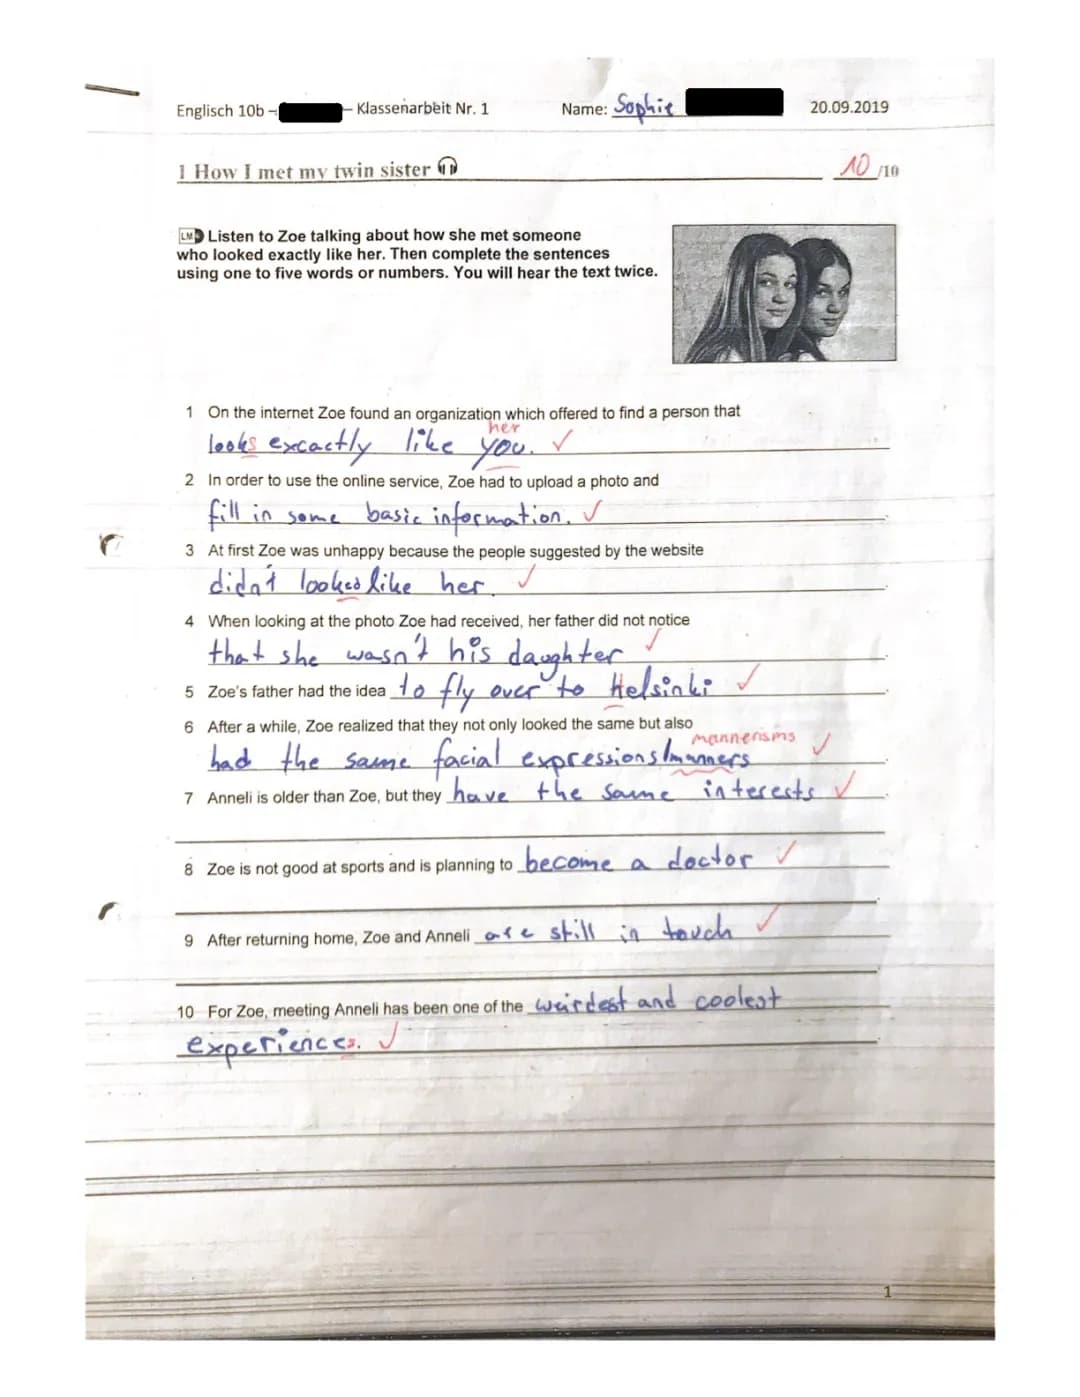 Englisch 10b - – Klassenarbeit Nr. 1 Name: Sophie 20.09.2019
1 How I met my twin sister 10 /10
LM Listen to Zoe talking about how she met someone
who looked exactly like her. Then complete the sentences
using one to five words or numbers. You will hear the text twice.
1 On the internet Zoe found an organization which offered to find a person that
her
looks excactly like you. ✓
2 In order to use the online service, Zoe had to upload a photo and
fill in some basic information. ✓
3 At first Zoe was unhappy because the people suggested by the website
didn't looked like her. ✓
4 When looking at the photo Zoe had received, her father did not notice
that she wasn't his daughter ✓
5 Zoe's father had the idea to fly over to Helsinki ✓
6 After a while, Zoe realized that they not only looked the same but also
mannerisms ✓
had the same facial expressions/manners
7 Anneli is older than Zoe, but they have the same interests ✓
8 Zoe is not good at sports and is planning to become a doctor ✓
9 After returning home, Zoe and Anneli are still in touch ✓
10 For Zoe, meeting Anneli has been one of the weirdest and coolest
experiences. ✓
1